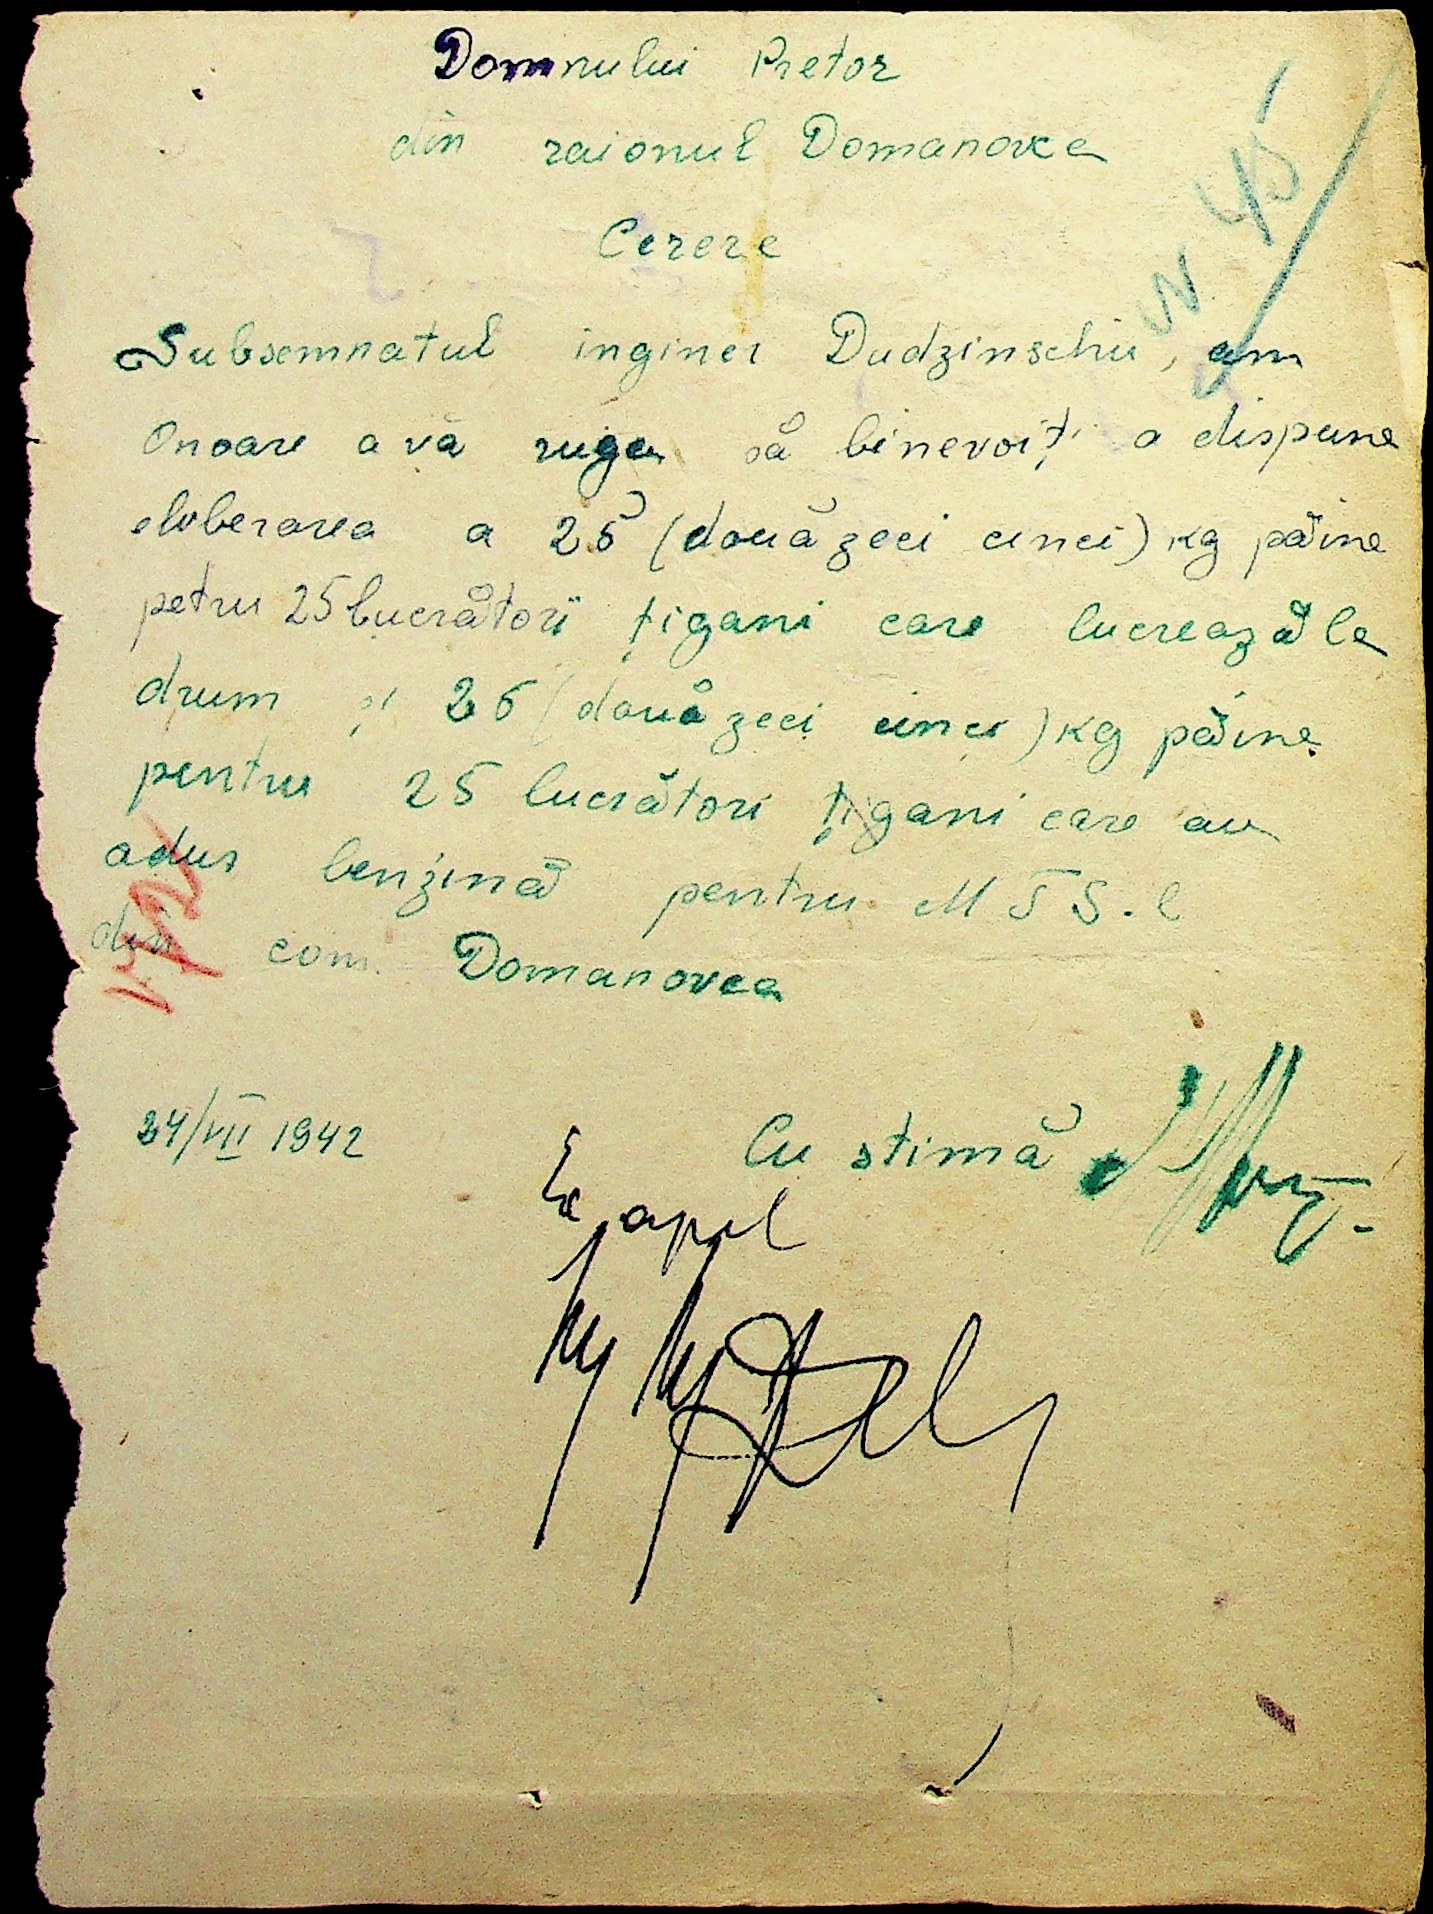 Domnului Pretor
din raionul Domanovca
N 45
Cerere
Subsemnatul inginer Dudzinschii, am
onoare a vă ruga să binevoiți a dispune
eloberarea a 25 (două zeci cinci) kg păine
petru 25 lucrători țigani care lucrează la
drum și 25 (două zeci cinci) kg păine
pentru 25 lucrători țigani care au
adus benzină pentru MTS-l
din com. Domanovca
24/VII 1942
Cu stimă